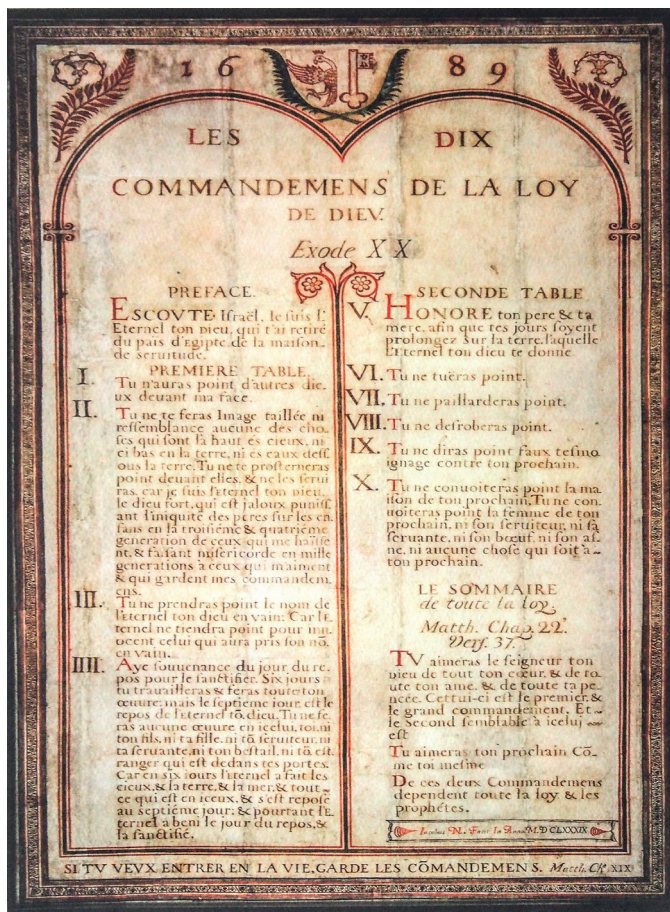 1689
LES DIX
COMMANDEMENS DE LA LOY
DE DIEV.
Exode XX
PREFACE.
ESCOVTE Israël, Ie suis l'
Eternel ton Dieu, qui t'ai retiré
du païs d'egipte de la maison
de seruitude.
PREMIERE TABLE.
I. Tu n'auras point d'autres die
ux deuant ma face.
II. Tu ne te feras Image taillée ni
ressemblance aucune des cho
ses qui sont là haut és cieux, ni
ci bas en la terre, ni és eaux dess
ous la terre. Tu ne te prosterneras
point deuant elles, & ne les serui
ras, car je suis l'eternel ton dieu,
le dieu fort, qui est jaloux puniss
ant l'iniquité des peres sur les en
fans en la troisiéme & quatriéme
generation de ceux qui me haïsse
nt, & faisant misericorde en mille
generations à ceux qui m'aiment
& qui gardent mes commandem
ens.
III. Tu ne prendras point le nom de
l'eternel ton dieu en vain: Car l'E
ternel ne tiendra point pour inn
ocent celui qui aura pris son nõ
en vain.
IIII. Aye souuenance du jour du re
pos pour le sanctifier. Six jours
tu trauailleras & feras toute ton
œuure: mais le septiéme jour est le
repos de l'eternel tõ dieu. Tu ne fe
ras aucune œuure en icelui, toi, ni
ton fils, ni ta fille, ni tõ seruiteur, ni
ta seruante, ni ton bestail, ni tõ est
ranger qui est dedans tes portes.
Car en six iours l'eternel a fait les
cieux, & la terre, & la mer, & tout
ce qui est en iceux, & s'est reposé
au septiéme jour; & pourtant l'E
ternel a beni le jour du repos, &
la sanctifié.
SECONDE TABLE
V. HONORE ton pere & ta
mere, afin que tes jours soyent
prolongez sur la terre, laquelle
L'Eternel ton dieu te donne
VI. Tu ne tuëras point.
VII. Tu ne paillarderas point.
VIII. Tu ne desroberas point.
IX. Tu ne diras point faux tesmo
ignage contre ton prochain.
X. Tu ne conuoiteras point la ma
ison de ton prochain, Tu ne con
uoiteras point la femme de ton
prochain, ni son seruiteur, ni sa
seruante, ni son bœuf, ni son as
ne, ni aucune chose qui soit a
ton prochain.
LE SOMMAIRE
de toute la loy
Matth. Chap. 22.
Vers. 37.
TV aimeras le seigneur ton
Dieu de tout ton cœur, & de to
ute ton ame, & de toute ta pe
ncée. Cettui-ci est le premier, &
le grand commandement. Et
le second semblable à icelui
est
Tu aimeras ton prochain Cõ
me toi mesme
De ces deux Commandemens
dependent toute la loy, & les
prophétes.
M.DCLXXXIX
SI TV VEVX ENTRER EN LA VIE, GARDE LES CÕMANDEMENS. Matth. Ch. XIX